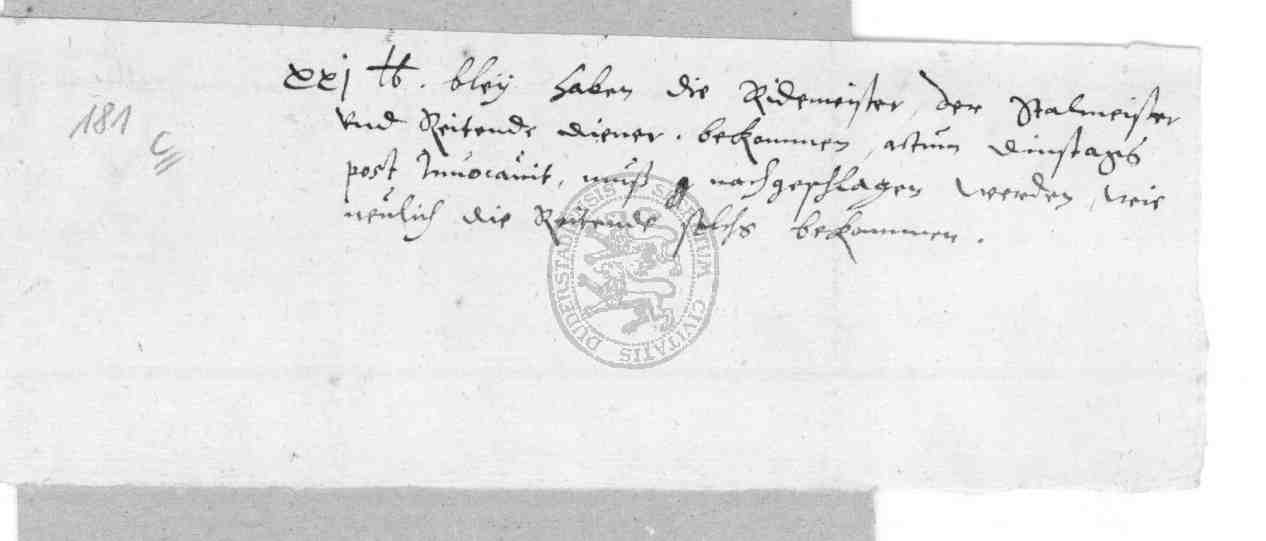 181
C
xxj ℔. bleÿ haben die Ridemeister, der Stalmeister
vnd Reitende diener. bekommen, actum dinstages
post Inuocauit, muß nachgeschlagen werden, wie
neulich die Reitende solchs bekommen.
SIGILLUM CIVITATIS DUDERSTADENSIS